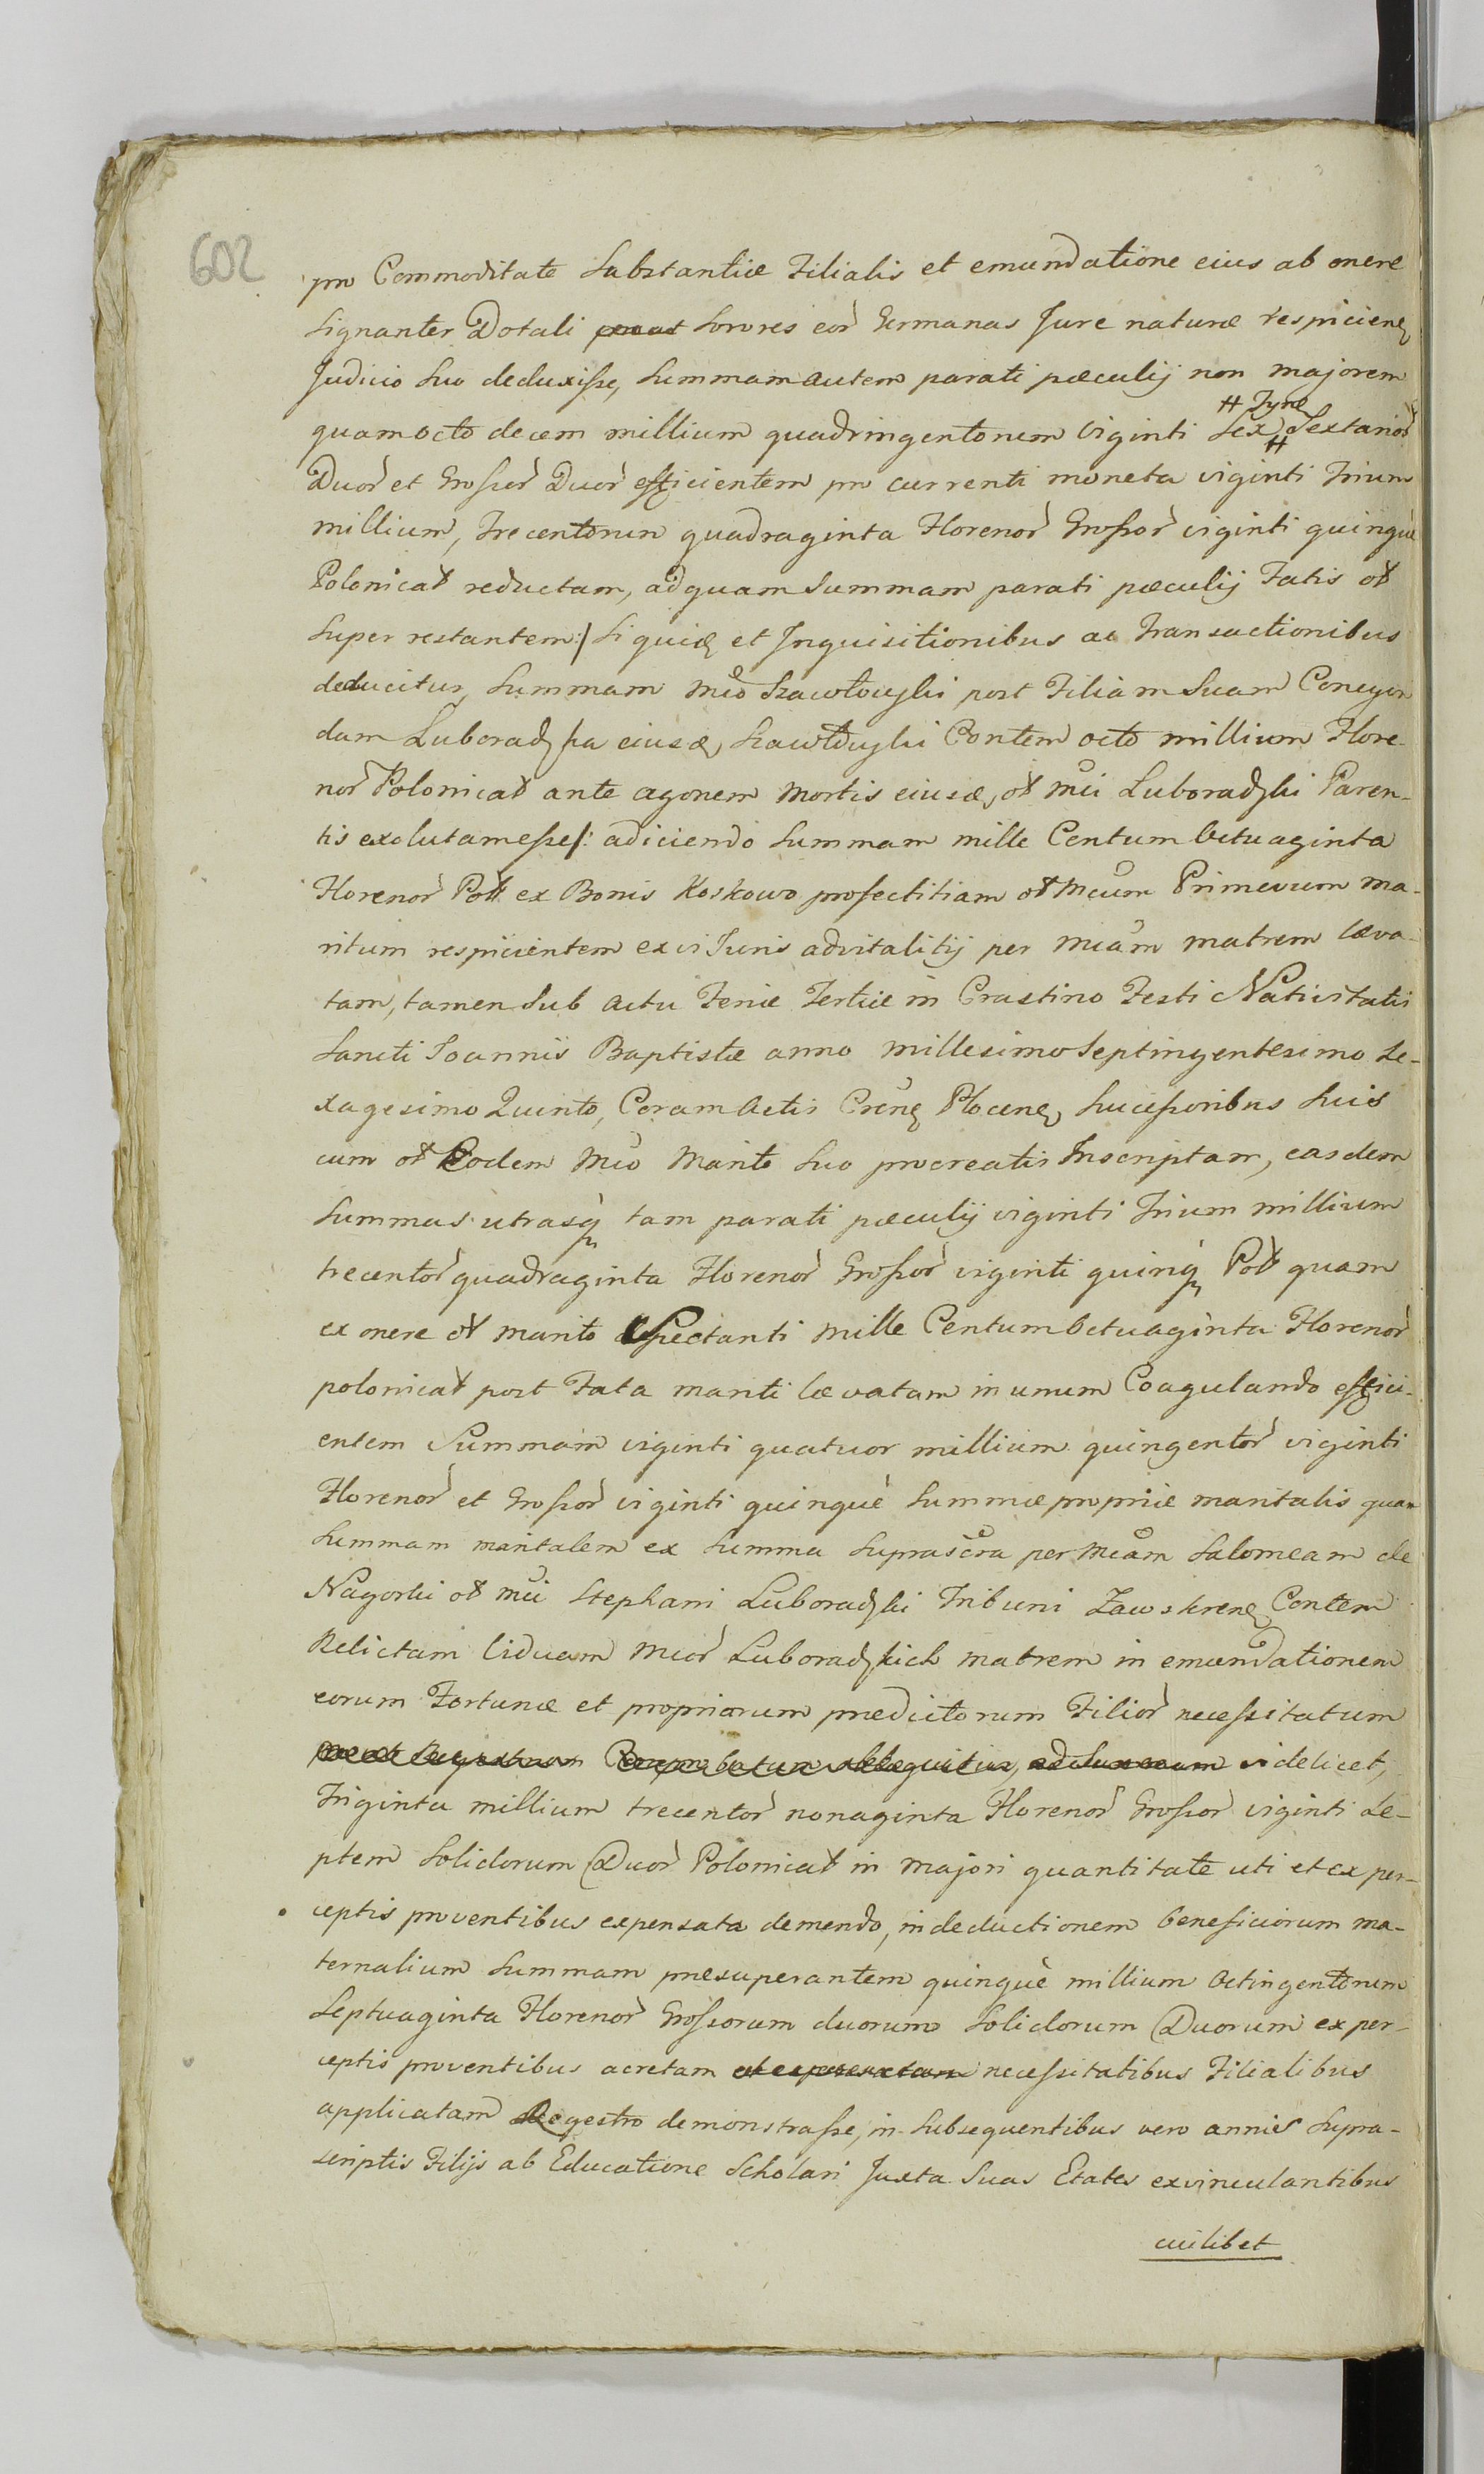 602
pro Commoditate Substantiæ Filialis et emundatione eius ab onere
signanter Dotali Sorores eor̀ Germanas Jure naturæ respicien̄
Judicio suo deduxisse, Summam autem parati pæculij non majorem
# Tynf
quam octo decem millium quadringentorum viginti Sex # Sextarior̀
Duor̀ et Grossor̀ Duor̀ efficientem pro currenti moneta viginti Trium
millium, Trecentorum quadraginta Florenor̀ Grossor̀ viginti quinquè
Polonical reductam, ad quam Summam parati pæculij Fatis ol
super restantem:/ siquid et Inquisitionibus ac Transactionibus
deducitur, Summam Mco Szawłowski post Filiam Suam Conegun
dam Luboradzka eiusd, Szawłowski Contem octo millium Flore-
nor̀ Polonical ante agonem Mortis eiusd, ol Mci Luboradzki Paren-
tis exolutam esse/: adiciendo Summam mille Centum Octuaginta
Florenor̀ Pol ex Bonis Koskowo profectitiam ol Mcum Primevum ma-
ritum respicientem ex vi Juris advitalitij per Mcam matrem læva-
tam, tamen sub actu Feriæ Tertiæ in Crastino Festi Nativitatis
Sancti Joannis Baptistæ anno millesimo Septingentesimo Se-
xagesimo Quinto, Coram Actis Cren̄ Plocen̄, Successoribus Suis
cum ol Eodem Mco Marito Suo procreatis Inscriptam, easdem
Summas utrasq̀ tam parati pæculij viginti Trium millium
trecentor̀ quadraginta Florenor̀ Grossor̀ viginti quinq̀ Pol quam
ex onere ol marito Spectanti Mille Centum Octuaginta Florenor̀
polonical post Fata mariti lævatam in unum Coagulando effici-
entem Summam viginti quatuor millium quingentor̀ viginti
Florenor̀ et Grossor̀ viginti quinquè Summæ propriæ maritalis quam
Summam maritalem ex Summa Suprascra per Mcam Salomeam de
Nagorki ol Mci Stephani Luboradzki Tribuni Zawskren̄ Contem
Relictam Viduam Mcor̀ Luboradzkich matrem in emundationem
eorum Fortunæ et propriarum prædictorum Filior̀ necessitatum
videlicet,
Triginta millium trecentor̀ nonaginta Florenor̀ Grossor̀ viginti Se-
ptem Solidorum Duor̀ Polonical in majori quantitate uti et ex per-
ceptis proventibus expensata demendo, in deductionem beneficiorum ma-
ternalium Summam præsuperantem quinquè millium Octingentorum
Septuaginta Florenor̀ Grossorum duorum Solidorum Duorum ex per-
ceptis proventibus acretam necessitatibus Filialibus
applicatam Regestro demonstrasse, in Subsequentibus vero annis Supra-
scriptis Filijs ab Educatione Scholari Juxta Suas Etates exvinculantibus
cuilibet